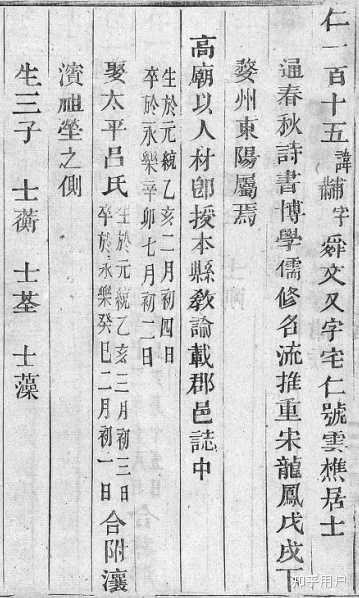 仁一百十五諱黼字舜文又字宅仁號雲樵居士
通春秋詩書博學儒修名流推重宋龍鳳戊戌下
婺州東陽屬焉
高廟以人材卽授本縣敎諭載郡邑誌中
生於元統乙亥二月初四日
卒於永樂辛卯七月初二日
娶太平呂氏
生於元統乙亥三月初三日
卒於永樂癸巳二月初一日
合附瀼
濱祖塋之側
生三子 士蘅 士荃 士藻
知乎用户